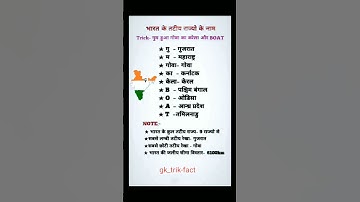 भारत के तटीय राज्यों के नाम
Trick- गुम हुआ गोवा का केरला और BOAT
★ गु - गुजरात
★ म - महाराष्ट्र
★ गोवा- गोवा
★ का - कर्नाटक
★ केला- केरल
★ B - पश्चिम बंगाल
★ O - ओडिसा
★ A - आन्ध्र प्रदेश
★ T -तमिलनाडु
NOTE:-
★ भारत के कुल तटीय राज्य- 9 राज्यों से
★सबसे लम्बी तटीय रेखा- गुजरात
★सबसे छोटी तटीय रेखा - गोवा
★ भारत की जलीय सीमा विस्तार- 6100km
gk_trik-fact